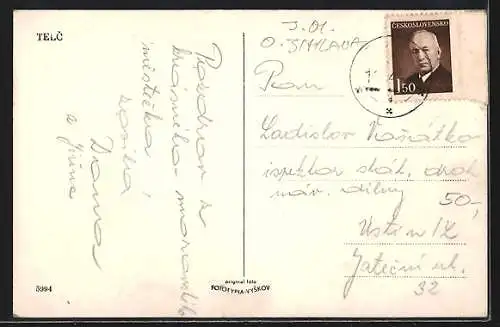 TELČ
Pozdrav z
krásného moravského
městečka!
zasílá
Dana
a Jiřina
5994
original foto
FOTOTYPIA-VYŠKOV
J. 01.
O. JIHLAVA.
ČESKOSLOVENSKO
1 50
Pan
Ladislav
inspektor stát. drah
náv. dílny
50,-
Ústí n/L
Jateční ul.
32